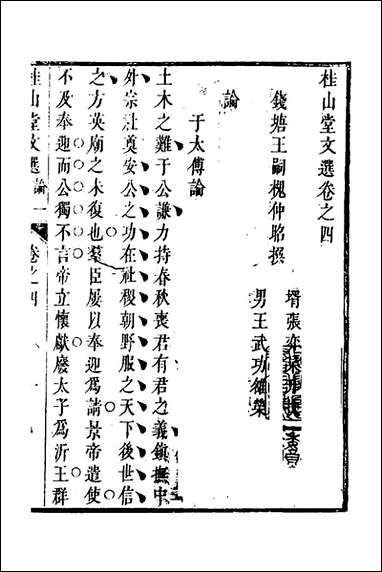 桂山堂文選卷之四
錢塘王嗣槐仲昭撰
壻張
男王武功
論
于太傅論
土木之難于公謙力持春秋喪君有君之義鎮撫中
外宗社奠安公之功在社稷朝野服之天下後世信
之方英廟之未復也羣臣屢以奉迎為請景帝遣使
不及奉迎而公獨不言帝立懷獻廢太子為沂王群
桂山堂文選 論一 卷之四